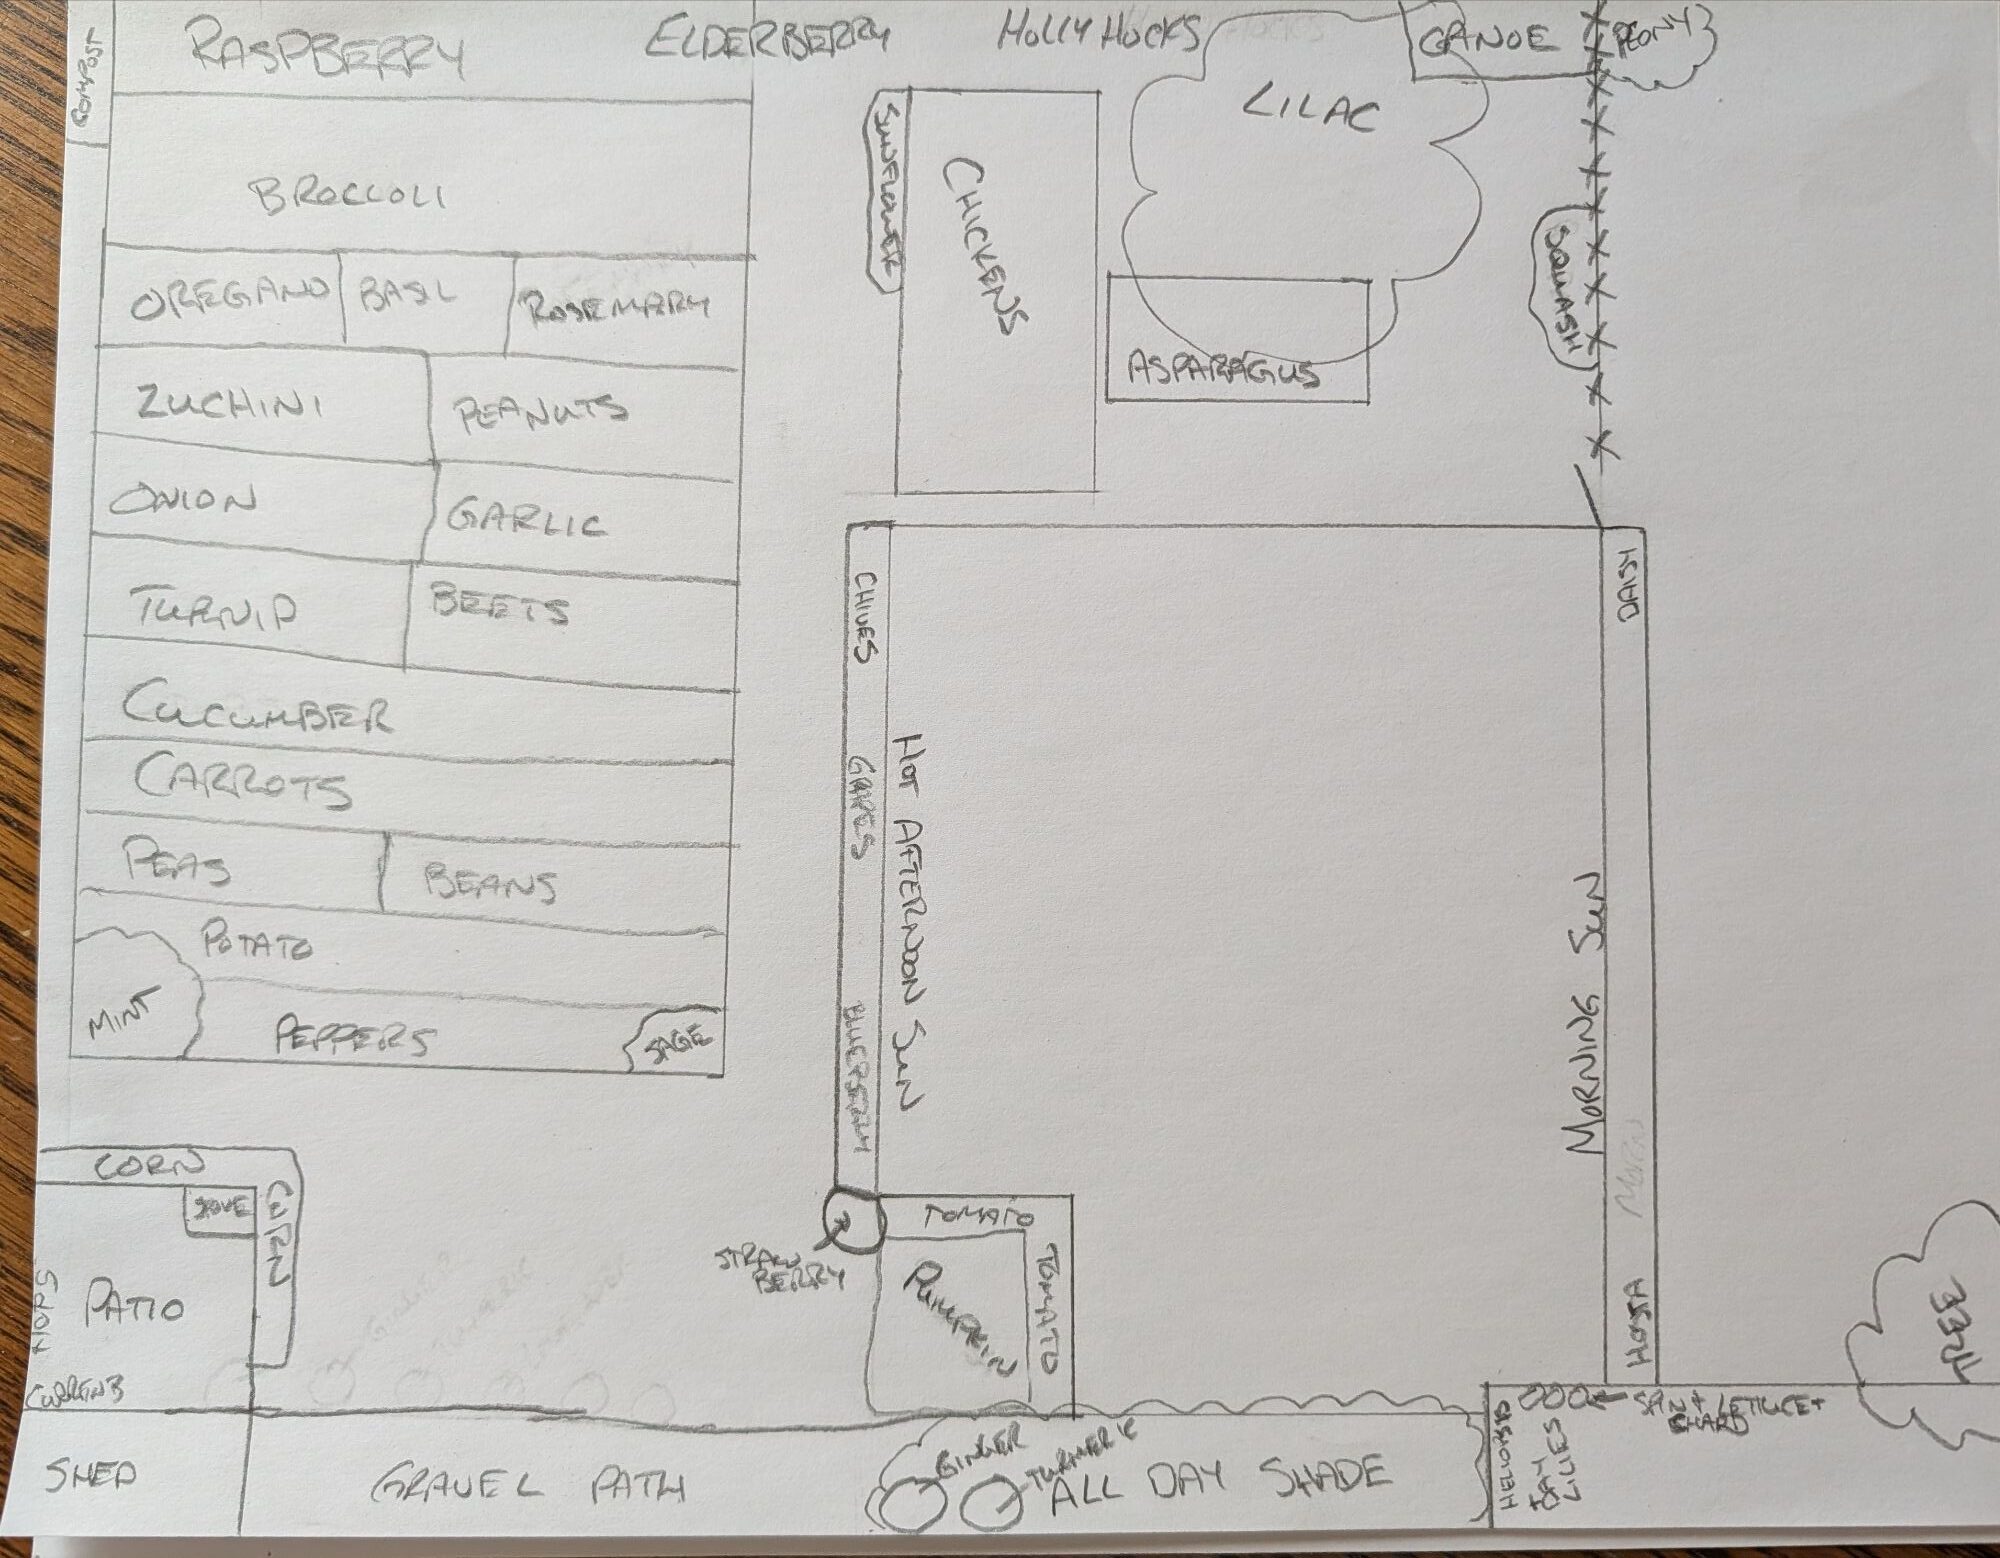 COMPOST
RASPBERRY
ELDERBERRY
HOLLY HOCKS
CANOE
PEONY
LILAC
SUNFLOWER
CHICKENS
BROCCOLI
OREGANO
BASIL
ROSEMARY
SQUASH
ASPARAGUS
ZUCHINI
PEANUTS
ONION
GARLIC
TURNIP
BEETS
CHIVES
DAISY
CUCUMBER
CARROTS
GRAPES
HOT AFTERNOON SUN
PEAS
BEANS
MORNING SUN
POTATO
MINT
PEPPERS
SAGE
BLUEBERRY
MORN
CORN
CORN
PATIO
HOPS
STRAW
BERRY
TOMATO
TOMATO
PUMPKIN
HOSTA
TREE
SHED
GRAVEL PATH
GINGER
TURMERIC
ALL DAY SHADE
DAY
LILIES
SPIN + LETTUCE +
CHARD